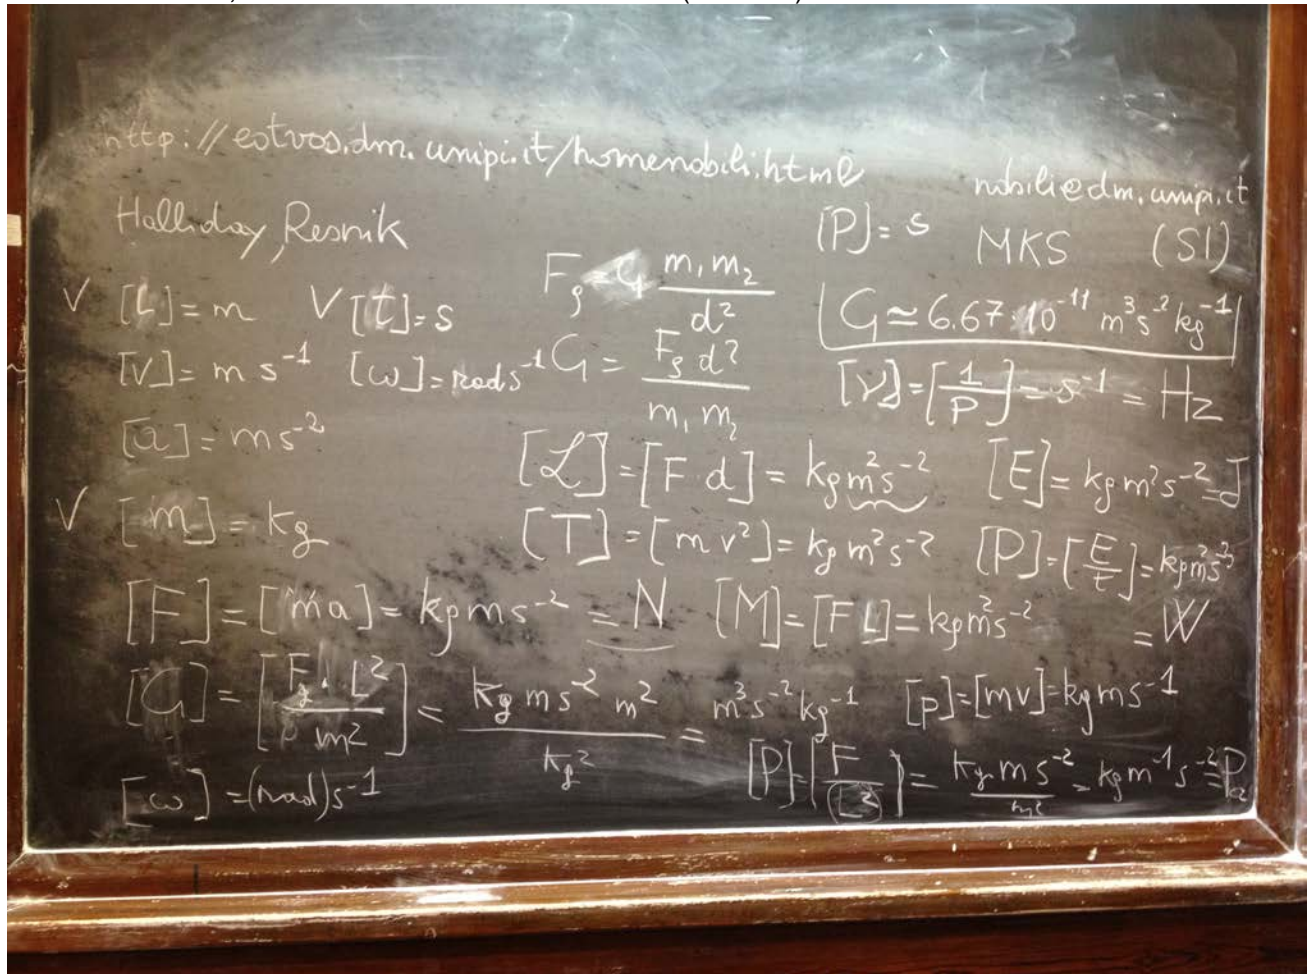 http://eotvos.dm.unipi.it/homenobili.html
nobili@dm.unipi.it
Halliday, Resnik
[P] = s MKS (SI)
V [L] = m V [t] = s
F_g = G m₁m₂/d²
G ≃ 6.67·10⁻¹¹ m³s⁻²kg⁻¹
[v] = m s⁻¹ [ω] = rad s⁻¹
G = F_g d²/m₁m₂
[ν] = [1/P] = s⁻¹ = Hz
[a] = m s⁻²
[ℒ] = [F·d] = kg m²s⁻² [E] = kg m²s⁻² = J
V [m] = kg
[T] = [mv²] = kg m²s⁻² [P] = [E/t] = kg m²s⁻³ = W
[F] = [ma] = kg m s⁻² = N [M] = [F L] = kg m²s⁻²
[G] = [F_g·L²/m²] = kg m s⁻² m²/kg² = m³s⁻²kg⁻¹ [p] = [mv] = kg m s⁻¹
[ω] = (rad)s⁻¹ [P] = [F/L²] = kg m s⁻²/m² = kg m⁻¹s⁻² = Pa